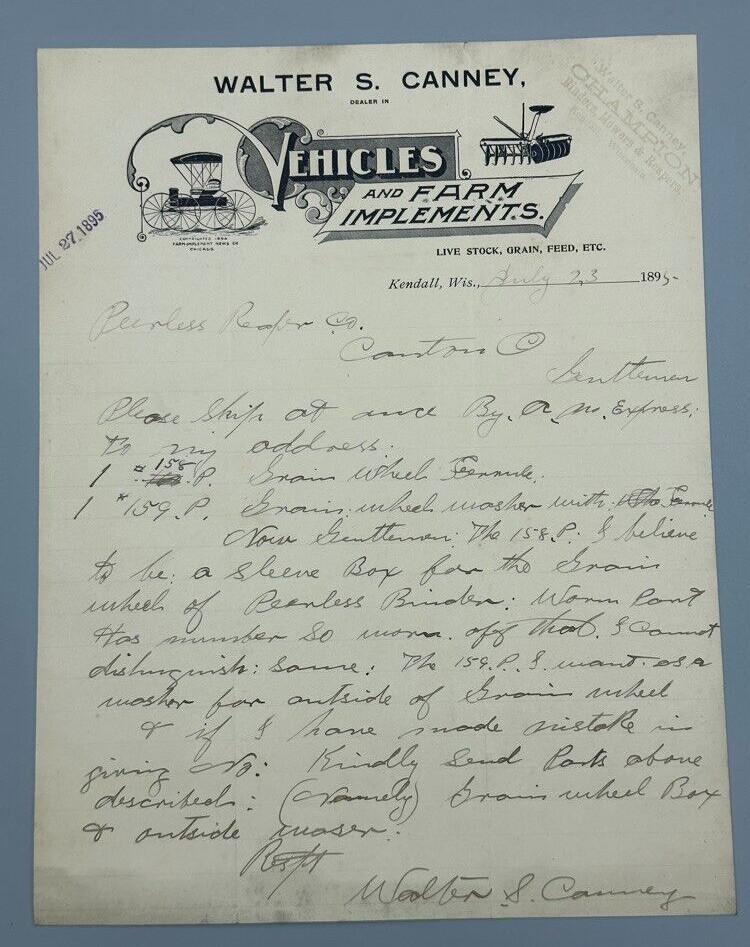 WALTER S. CANNEY,
DEALER IN
VEHICLES
AND FARM
IMPLEMENTS.
COPYRIGHTED 1894
FARM IMPLEMENT NEWS CO
CHICAGO
LIVE STOCK, GRAIN, FEED, ETC.
Walter S. Canney
CHAMPION
Binders, Mowers & Reapers,
Wisconsin
JUL 27, 1895
Kendall, Wis., July 23 1895-
Peerless Reaper Co.
Canton O
Gentlemen
Please Ship at once By. A. m. Express;
to my address:
1 # 158 P. Grain wheel Ferrule.
1 # 159. P. Grain wheel washer with Ferrule
Now Gentlemen: The 158. P. I believe
to be: a Sleeve Box for the Grain
wheel of Peerless Binder: Worn Part
Has number So worn off that I Cannot
distinguish: Same: The 159. P. I want as a
washer for outside of Grain wheel
& if I have made mistake in
giving No: Kindly Send Parts above
described: (Namely) Grain wheel Box
& outside waser:
Respt
Walter S. Canney